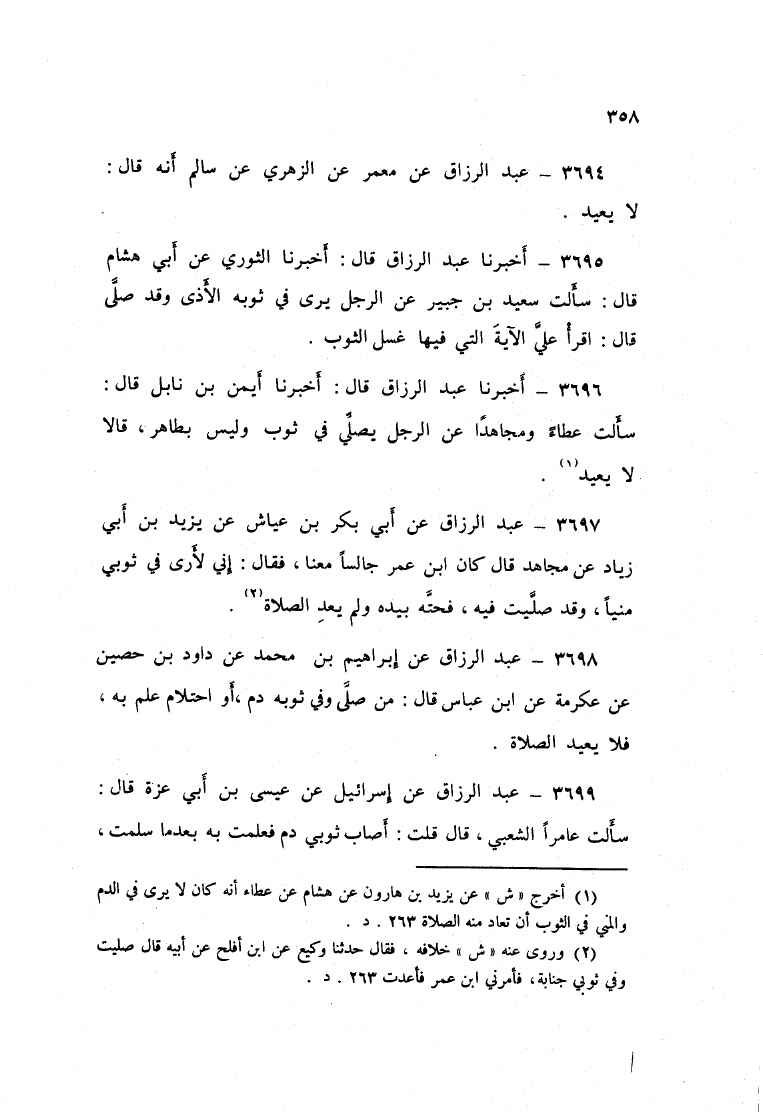 ٣٥٨
٣٦٩٤ – عبد الرزاق عن معمر عن الزهري عن سالم أَنه قال :
لا يعيد .
٣٦٩٥ – أَخبرنا عبد الرزاق قال : أَخبرنا الثوري عن أَبي هشام
قال : سأَلت سعيد بن جبير عن الرجل يرى في ثوبه الأَذى وقد صلَّى
قال : اقرأْ عليَّ الآيةَ التي فيها غسل الثوب .
٣٦٩٦ – أَخبرنا عبد الرزاق قال : أَخبرنا أَيمن بن نابل قال :
سأَلت عطاءً ومجاهدًا عن الرجل يصلِّي في ثوب وليس بطاهر ، قالا
لا يعيد(١) .
٣٦٩٧ – عبد الرزاق عن أَبي بكر بن عياش عن يزيد بن أَبي
زياد عن مجاهد قال كان ابن عمر جالساً معنا ، فقال : إِني لأَرى في ثوبي
منياً ، وقد صلَّيت فيه ، فحتَّه بيده ولم يعدِ الصلاة(٢) .
٣٦٩٨ – عبد الرزاق عن إِبراهيم بن محمد عن داود بن حصين
عن عكرمة عن ابن عباس قال : من صلَّى وفي ثوبه دم ،أَو احتلام علم به ،
فلا يعيد الصلاة .
٣٦٩٩ – عبد الرزاق عن إِسرائيل عن عيسى بن أَبي عزة قال :
سأَلت عامراً الشعبي ، قال قلت : أَصاب ثوبي دم فعلمت به بعدما سلمت ،
(١) أخرج « ش » عن يزيد بن هارون عن هشام عن عطاء أنه كان لا يرى في الدم
والمني في الثوب أن تعاد منه الصلاة ٢٦٣ . د .
(٢) وروى عنه « ش » خلافه ، فقال حدثنا وكيع عن ابن أفلح عن أبيه قال صليت
وفي ثوبي جنابة، فأمرني ابن عمر فأعدت ٢٦٣ . د .